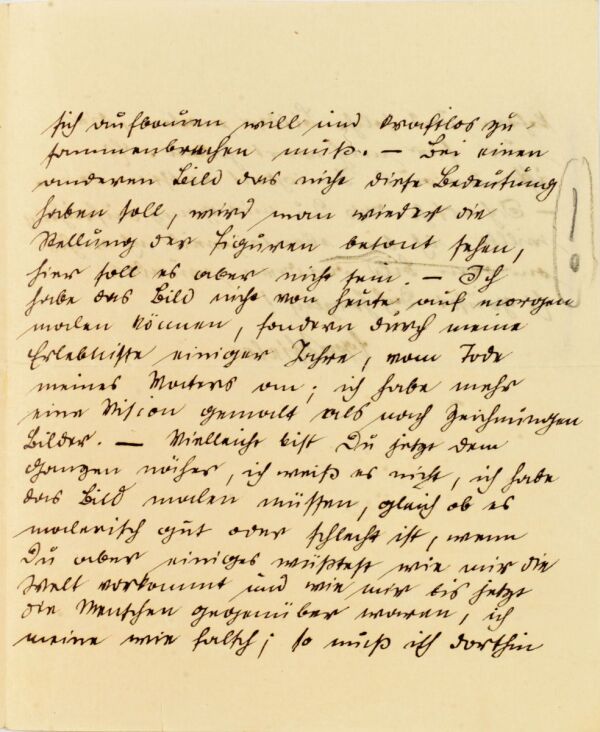 sich aufbauen will und kraftlos zu
sammenbrechen muß. — Bei einen
anderen Bild das nicht diese Bedeutung
haben soll, wird man wieder die
Stellung der Figuren betont sehen,
hier soll es aber nicht sein. — Ich
habe das Bild nicht von heute auf morgen
malen können, sondern durch meine
Erlebnisse einiger Jahre, vom Tode
meines Vaters an; ich habe mehr
eine Vision gemalt als nach Zeichnungen
Bilder. — Vielleicht bist Du jetzt dem
Ganzen näher, ich weiß es nicht, ich habe
das Bild malen müssen, gleich ob es
malerisch gut oder schlecht ist, wenn
Du aber einiges wüßtest wie mir die
Welt vorkommt und wie mir bis jetzt
die Menschen gegenüber waren, ich
meine wie falsch; so muß ich dorthin